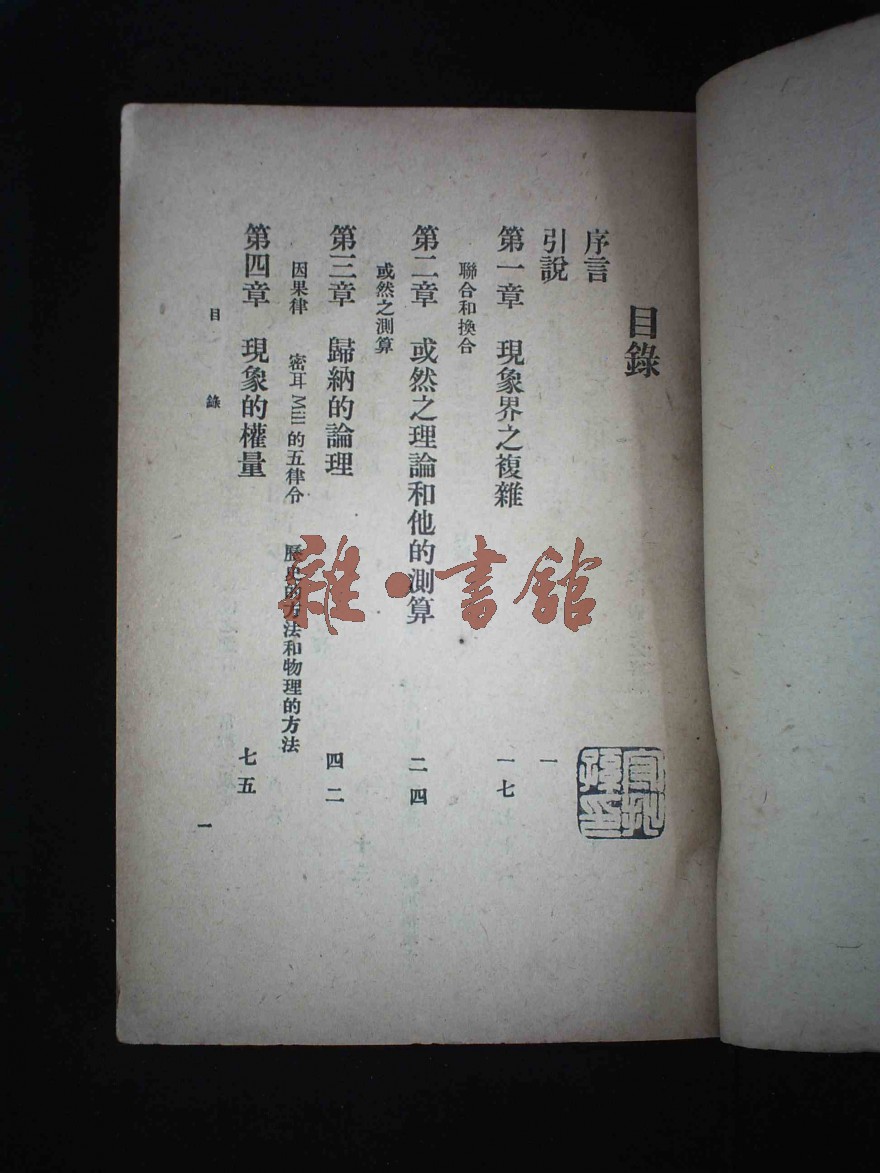 目錄
序言
引說 一
第一章 現象界之複雜 一七
聯合和換合
第二章 或然之理論和他的測算 二四
或然之測算
第三章 歸納的論理 四二
因果律 密耳 Mill 的五律令 歷史的方法和物理的方法
第四章 現象的權量 七五
目錄 一
雜·書館